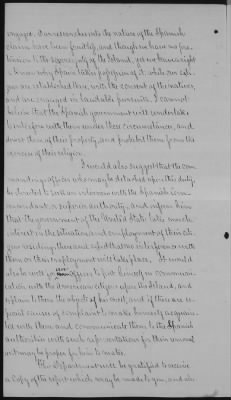 engage. Our researches into the nature of the Spanish
claim have been fruitless, and though we have no pre-
tension to the sovereignty of the Island, yet we have a right
to know why Spain takes possession of it while our citi-
zens are established there, with the consent of the natives,
and are engaged in laudable pursuits. I cannot
believe that the Spanish government will undertake
to interfere with them under these circumstances, and
divest them of their property, and prohibit them from the
exercise of their religion.
I would also suggest that the com-
manding officer who may be detached upon this duty,
be directed to seek an interview with the Spanish com-
mandant, or superior authority, and inform him
that the government of the United States takes much
interest in the situation and employment of their citi-
zens residing there and expect that no interference with
them or their employment will take place. It would
also be well for officer to put himself in communi-
cation with the American citizens upon the Island, and
explain to them the object of his visit, and if there are
causes of complaint to make himself acquain-
ted with them and communicate them to the Spanish
authorities with such representations for their removal
as it may be proper for him to make.
This Department will be gratified to receive
a copy of the report which may be made to you, and als